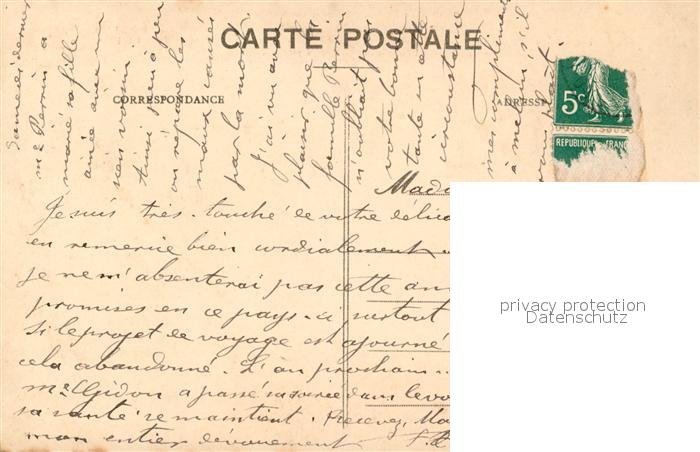 CARTE POSTALE
CORRESPONDANCE
ADRESSE
5c
REPUBLIQUE FRANC
Mada
Je suis très touché de votre délica
en remercie bien cordialement
je ne m'absenterai pas cette ann
promises en ce pays-ci surtout
Si le projet de voyage est ajourné
cela abandonné. L'an prochain
Mr Gidon a passé sa soirée dans le vo
sa santé se maintient. Recevez, Ma
mon entier dévouement
Samedi dernier
Mr Perrin a
marié sa fille
aînée avec un
sien voisin.
Ainsi peu à peu
on répare les
maux causés
par la mort.
J'ai vu avec
plaisir que
famille Perrin
n'oubliait pas
votre bonne
tante en cette
circonstance
mes compliments
à s'il
privacy protection
Datenschutz